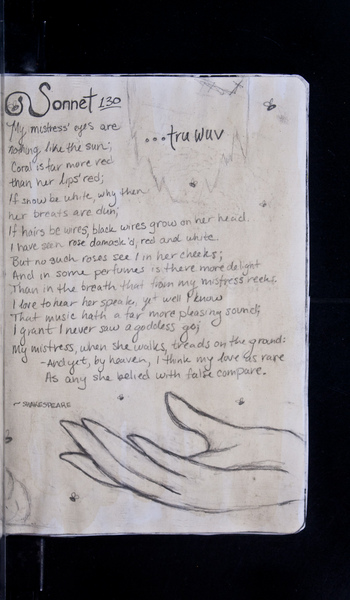 Sonnet 130
...tru wuv
My mistress' eyes are
nothing like the sun;
Coral is far more red
than her lips' red;
If snow be white, why then
her breats are dun;
If hairs be wires, black wires grow on her head.
I have seen rose damask'd, red and white
But no such roses see I in her cheeks;
And in some perfumes is there more delight
Than in the breath that from my mistress reeks.
I love to hear her speak, yet well I know
That music hath a far more pleasing sound;
I grant I never saw a goddess go;
My mistress, when she walks, treads on the ground:
-And yet, by heaven, I think my love as rare
As any she belied with false compare.
~SHAKESPEARE